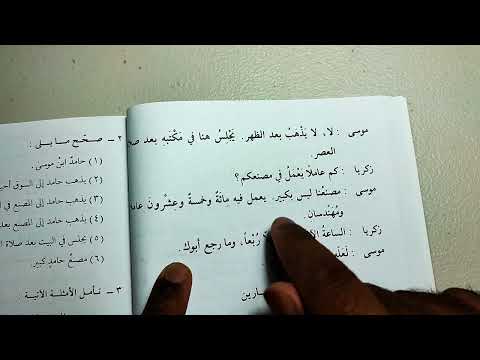 موسى : لا، لا يَذْهَبُ بعد الظهر. يَجْلِسُ هنا في مَكْتَبِهِ بعد
العصر.
زكريا : كم عاملًا يَعْمَلُ في مصنعكم؟
موسى : مصنَعُنا ليس بكبير. يعمل فيه مِائَةٌ وخمسةٌ وعِشْرونَ
ومُهَنْدِسان.
زكريا : الساعةُ رُبْعاً، وما رجع أبوك.
موسى :
٢ ــ صحّح ما يلي :
(١) حامدٌ ابنُ موسى.
(٢) يذهب حامد إلى السوق
(٣) يذهب حامد إلى المصنع في
(٤) يذهب حامد إلى المصنع بعد
(٥) يجلس في البيت بعد صلاة
(٦) مصنعُ حامدٍ كبير.
٣ ــ تأمل الأمثلة الآتية